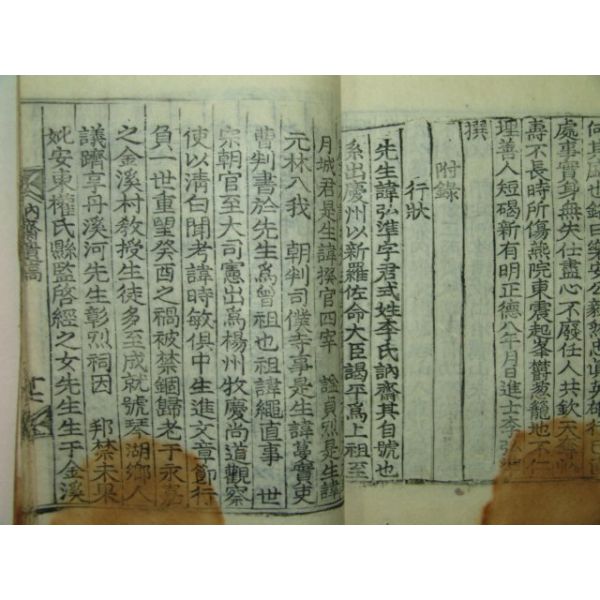 何其虛也銘曰樂安公毅然忠
處事實身無失仕盡心不厭任人共欽天奪
壽不長時所傷燕院東震起峯鬱葱籠地不仁
埋善人短碣新有明正德八年月日進士李弘
撰
附錄
行狀
先生諱弘準字君式姓李氏訥齋其自號也
系出慶州以新羅佐命大臣謁平爲上祖至
月城君是生諱撰官四宰 諡貞烈是生諱
元林入我 朝判司僕寺事是生諱蔓實吏
曹判書於先生爲曾祖也祖諱繩直事 世
宗朝官至大司憲出爲楊州牧慶尚道觀察
使以清白聞考諱時敏俱中生進文章節行
負一世重望癸酉之禍被禁錮歸老于永嘉
之金溪村教授生徒多至成就號琴湖鄉人
議躋享丹溪河先生彰烈祠因 邦禁未果
妣安東權氏縣監啓經之女先生生于金溪
訥齋遺稿